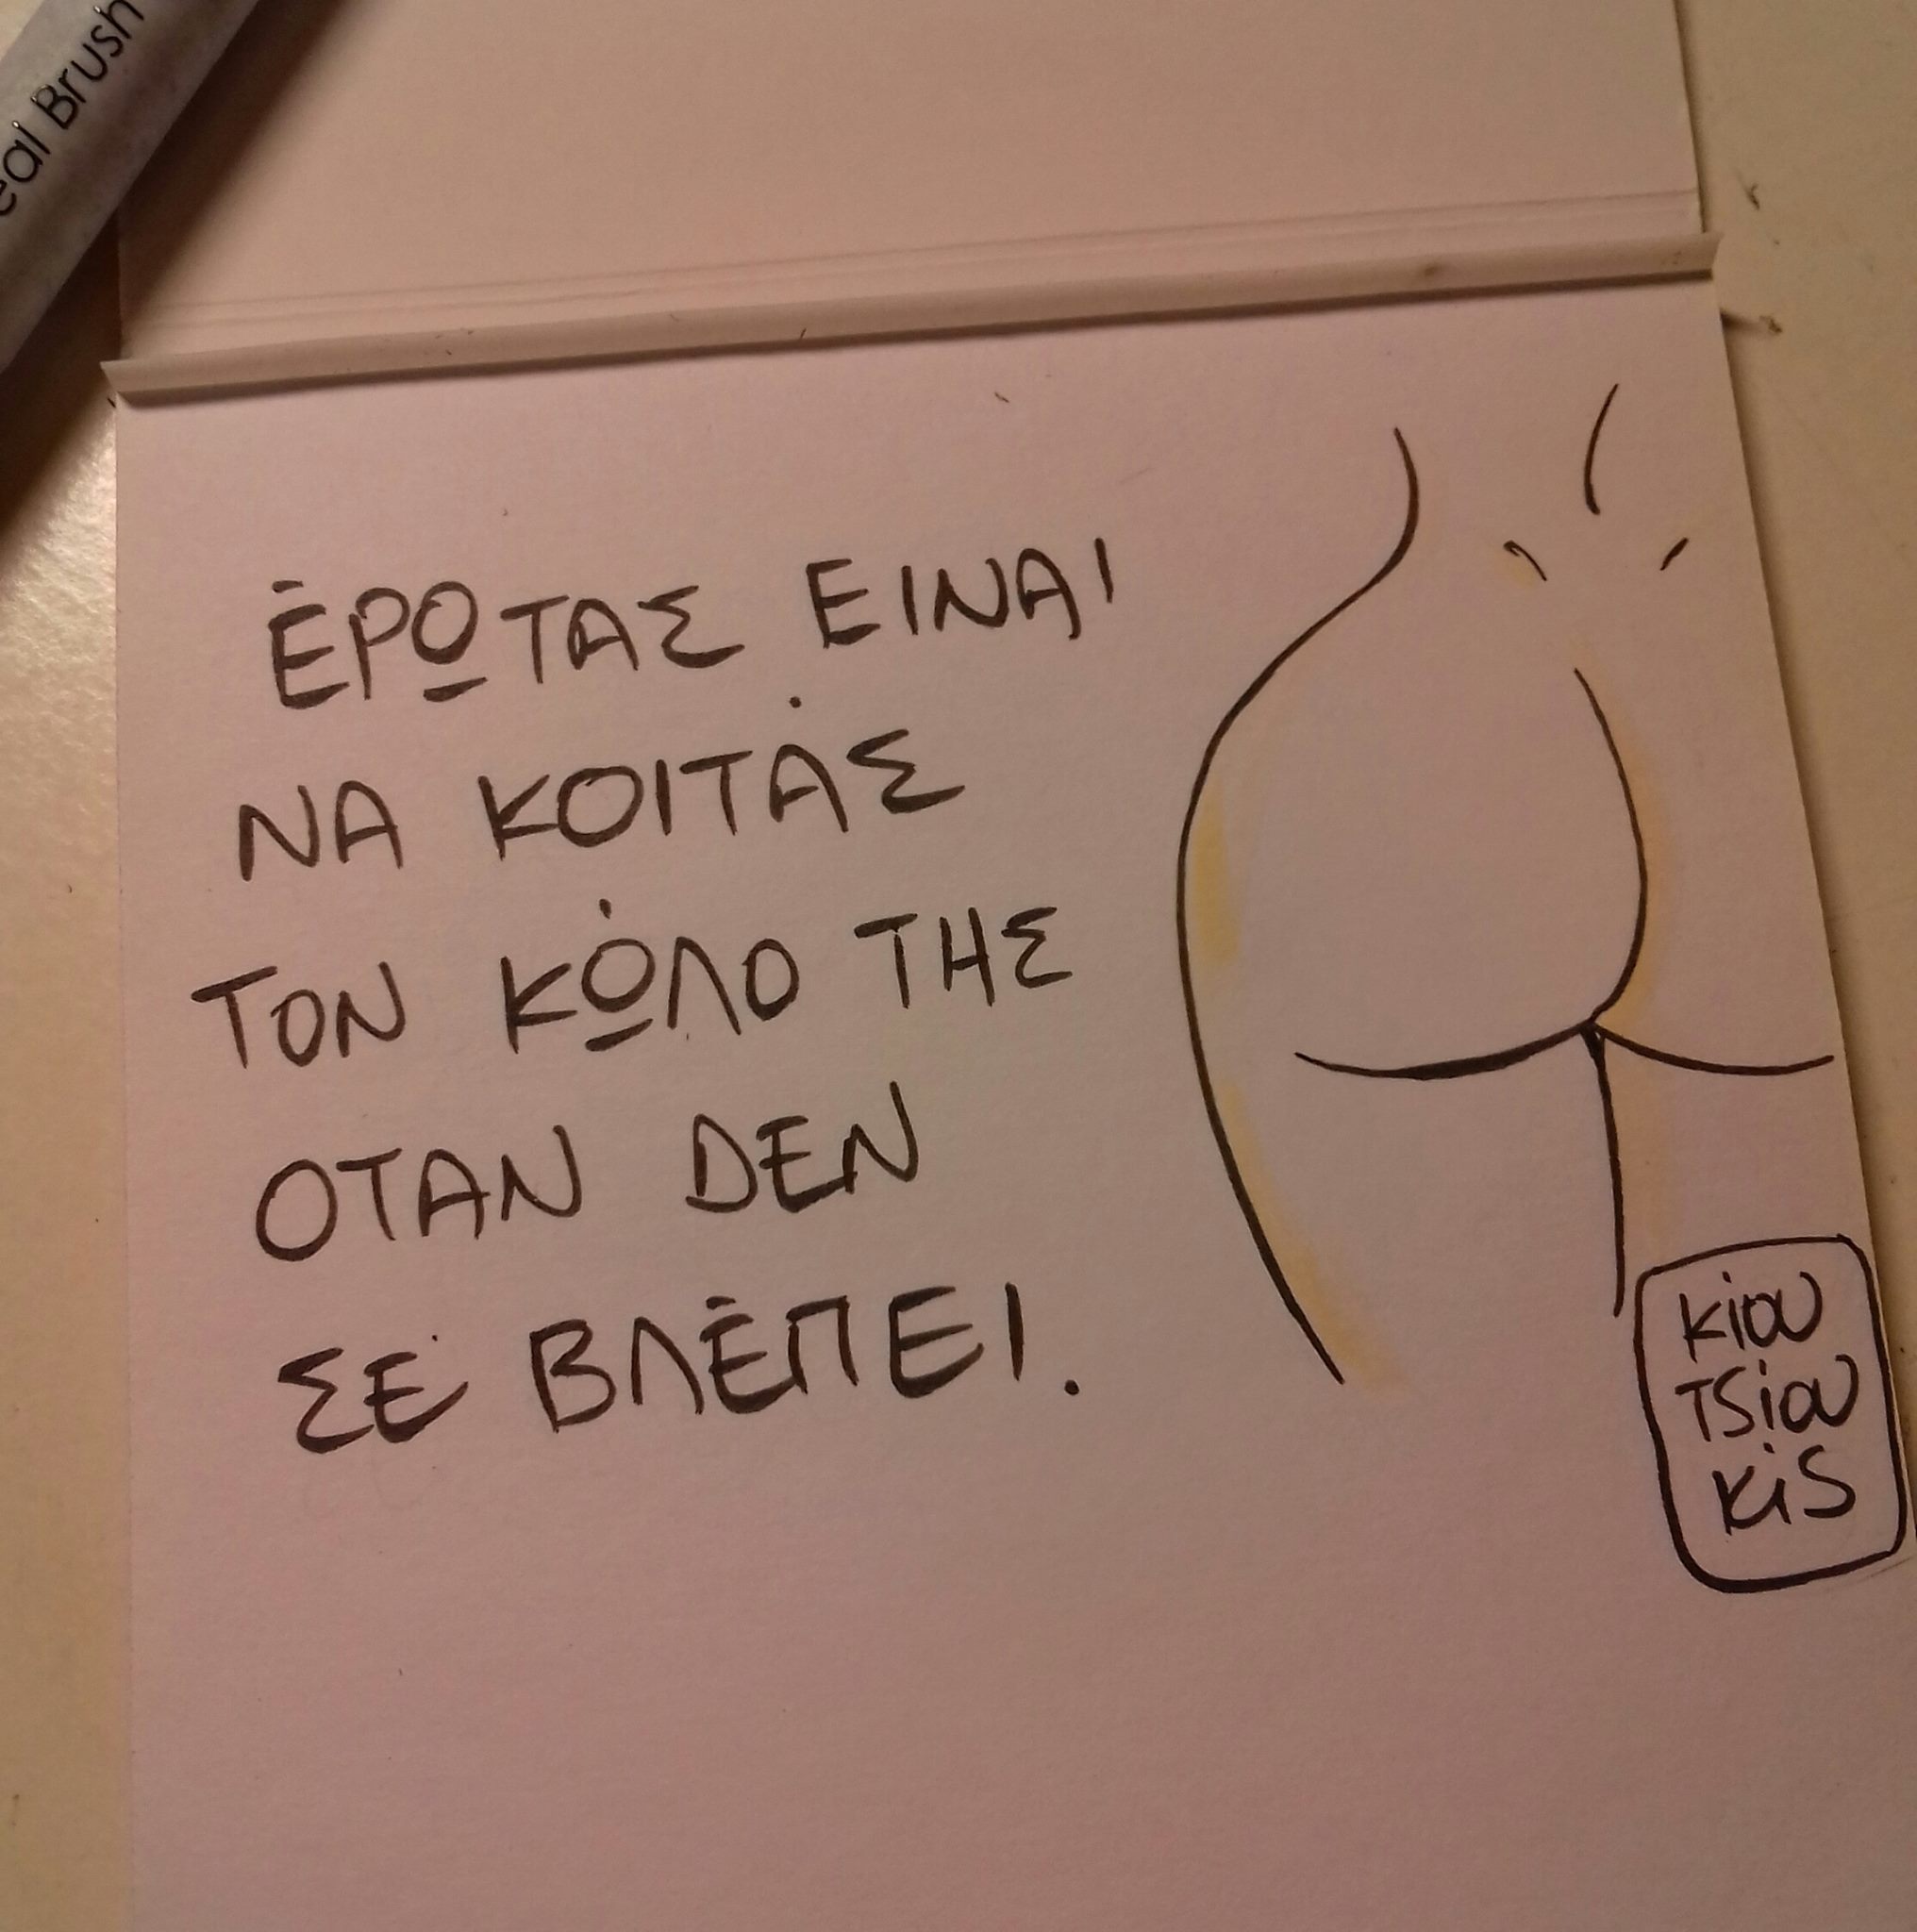 eal Brush
ΈΡΩΤΑΣ ΕΙΝΑΙ
ΝΑ ΚΟΙΤΆΣ
ΤΟΝ ΚΏΛΟ ΤΗΣ
ΟΤΑΝ DEN
ΣΕ ΒΛΈΠΕΙ.
κiου
τSiου
κiS